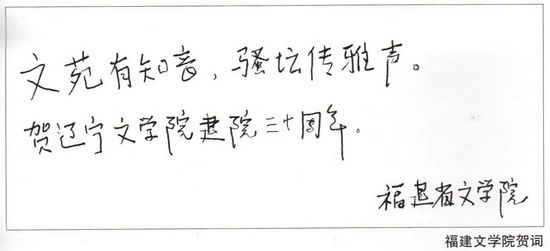 文苑有知音，骚坛传雅声。
贺辽宁文学院建院三十周年。
福建省文学院
福建文学院贺词